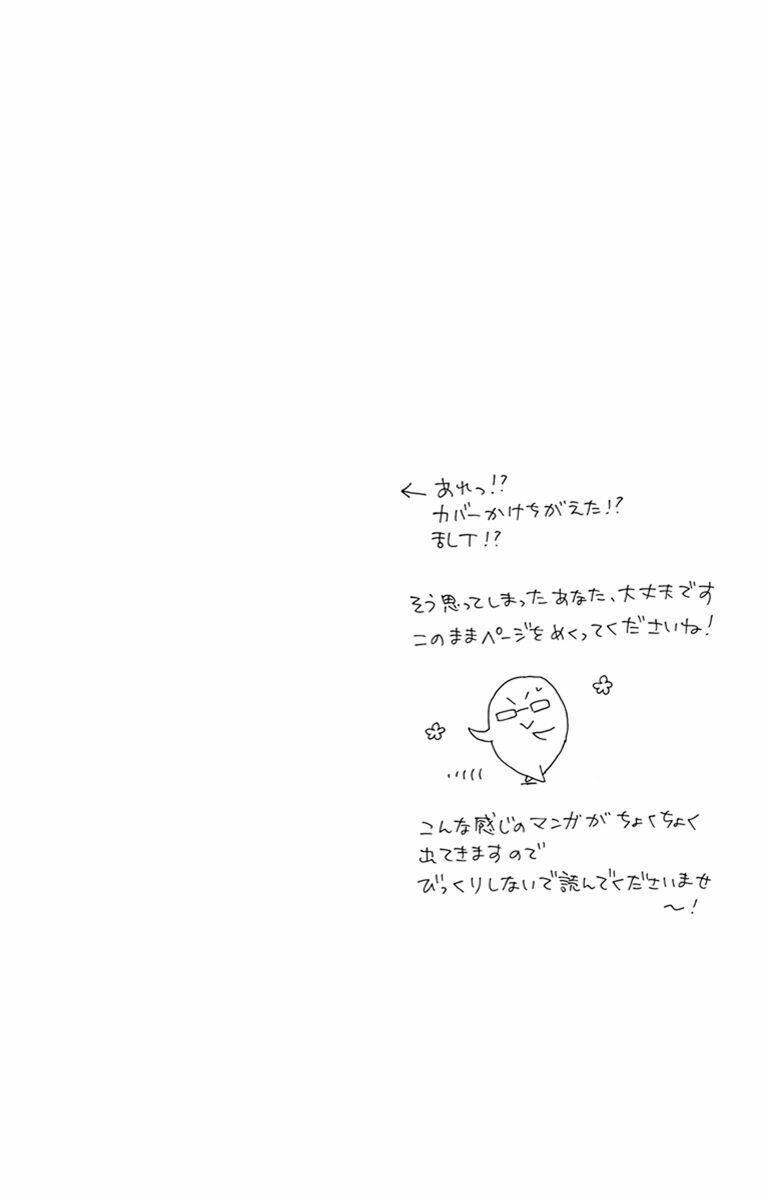 ← あれっ!?
カバーかけちがえた!?
乱丁!?
そう思ってしまったあなた、大丈夫です
このままページをめくってくださいね!
こんな感じのマンガがちょくちょく
出てきますので
びっくりしないで読んでくださいませ
〜!